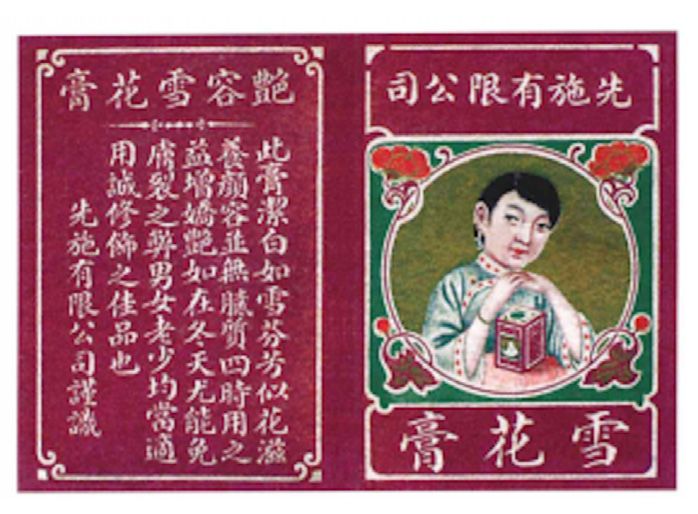 先施有限公司
雪花膏
艷容雪花膏
此膏潔白如雪芬芳似花滋
養顏容並無膩質四時用之
益增嬌艷如在冬天尤能免
膚裂之弊男女老少均當適
用誠修飾之佳品也
先施有限公司謹識